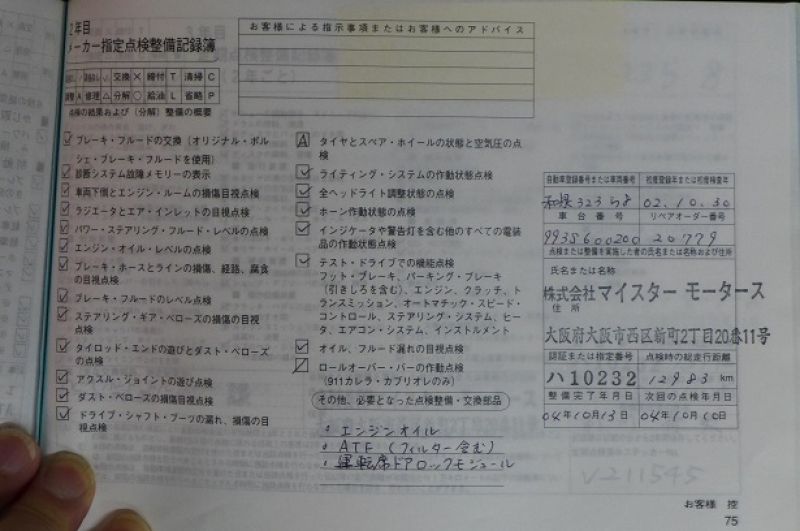 2年目
メーカー指定点検整備記録簿
お客様による指示事項またはお客様へのアドバイス
交換 × 締付 T 清掃 C
A 修理 △ 分解 ○ 給油 L 省略 P
点検の結果および(分解)整備の概要
ブレーキ・フルードの交換(オリジナル・ポル
シェ・ブレーキ・フルードを使用)
診断システム故障メモリーの表示
車両下側とエンジン・ルームの損傷目視点検
ラジエータとエア・インレットの目視点検
パワー・ステアリング・フルード・レベルの点検
エンジン・オイル・レベルの点検
ブレーキ・ホースとラインの損傷、経路、腐食
の目視点検
ブレーキ・フルードのレベル点検
ステアリング・ギア・ベローズの損傷の目視
点検
タイロッド・エンドの遊びとダスト・ベローズ
の点検
アクスル・ジョイントの遊び点検
ダスト・ベローズの損傷目視点検
ドライブ・シャフト・ブーツの漏れ、損傷の目
視点検
A タイヤとスペア・ホイールの状態と空気圧の点
検
ライティング・システムの作動状態点検
全ヘッドライト調整状態の点検
ホーン作動状態の点検
インジケータや警告灯を含む他のすべての電装
品の作動状態点検
テスト・ドライブでの機能点検
フット・ブレーキ、パーキング・ブレーキ
(引きしろを含む)、エンジン、クラッチ、ト
ランスミッション、オートマチック・スピード・
コントロール、ステアリング・システム、ヒー
タ、エアコン・システム、インストルメント
オイル、フルード漏れの目視点検
ロールオーバー・バーの作動点検
(911カレラ・カブリオレのみ)
その他、必要となった点検整備・交換部品
・エンジンオイル
・ATF(フィルター含む)
・運転席ドアロックモジュール
自動車登録番号または車両番号 初度登録年または初度検査年
和泉323 02.10.30
車台番号 リペアオーダー番号
9938600200 20779
点検または整備を実施した者の氏名または名称および住所
氏名または名称
株式会社マイスター モータース
住所
大阪府大阪市西区新町2丁目20番11号
認証または指定番号 点検時の総走行距離
ハ10232 12983 km
整備完了年月日 次回の点検年月日
04年10月13日 04年10月10日
V-211545
お客様 控
75